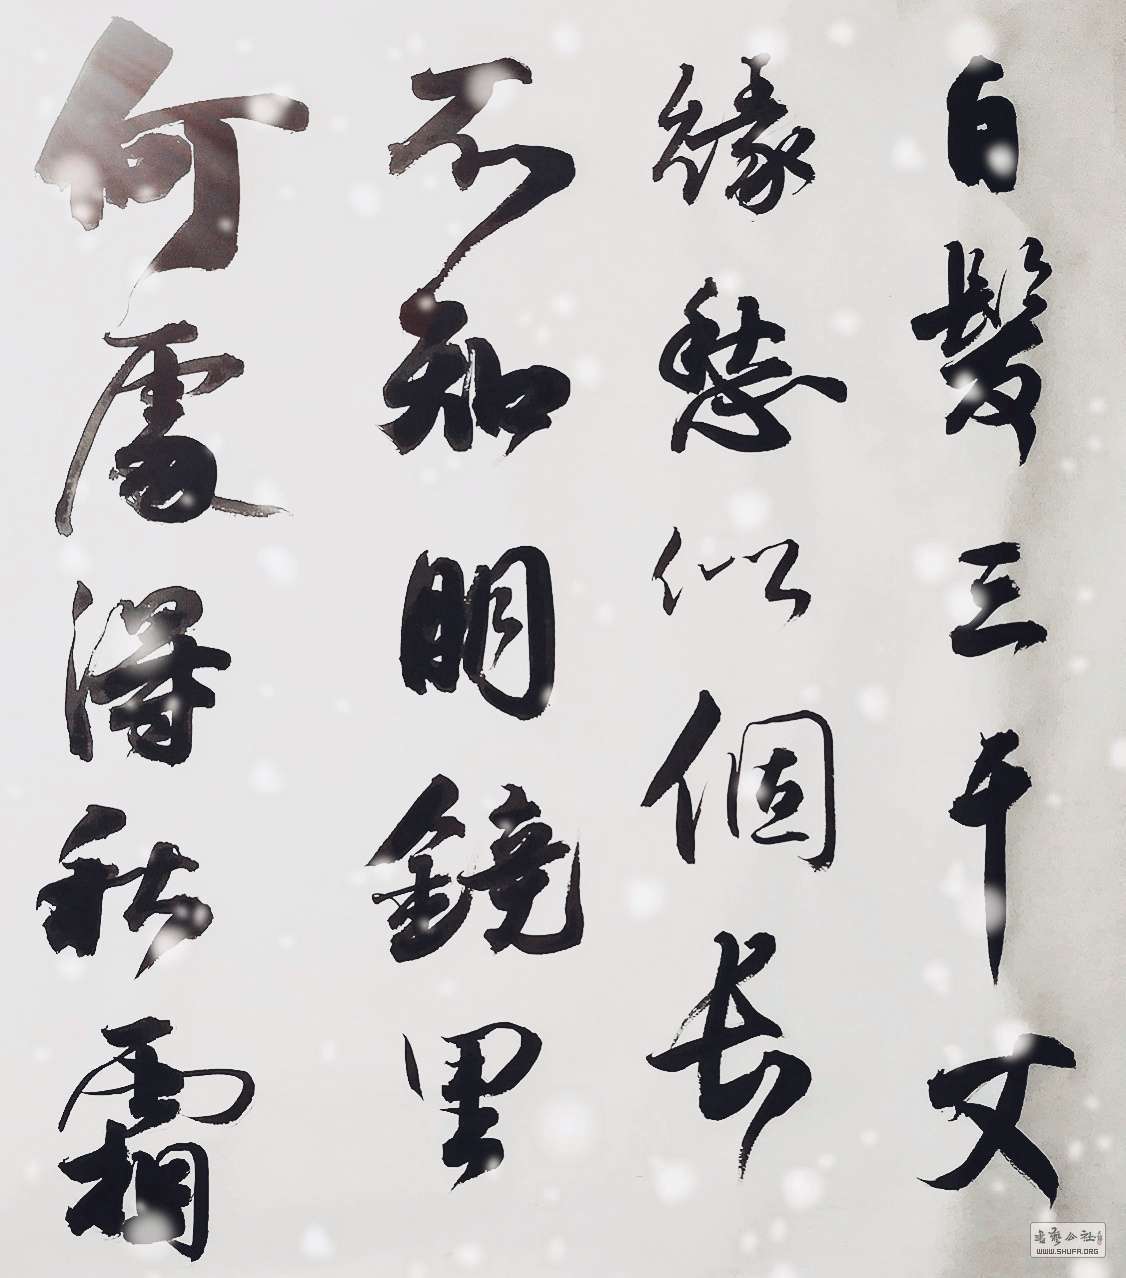 白髮三千丈
緣愁似個長
不知明鏡里
何處得秋霜
書藝公社
WWW.SHUFA.ORG